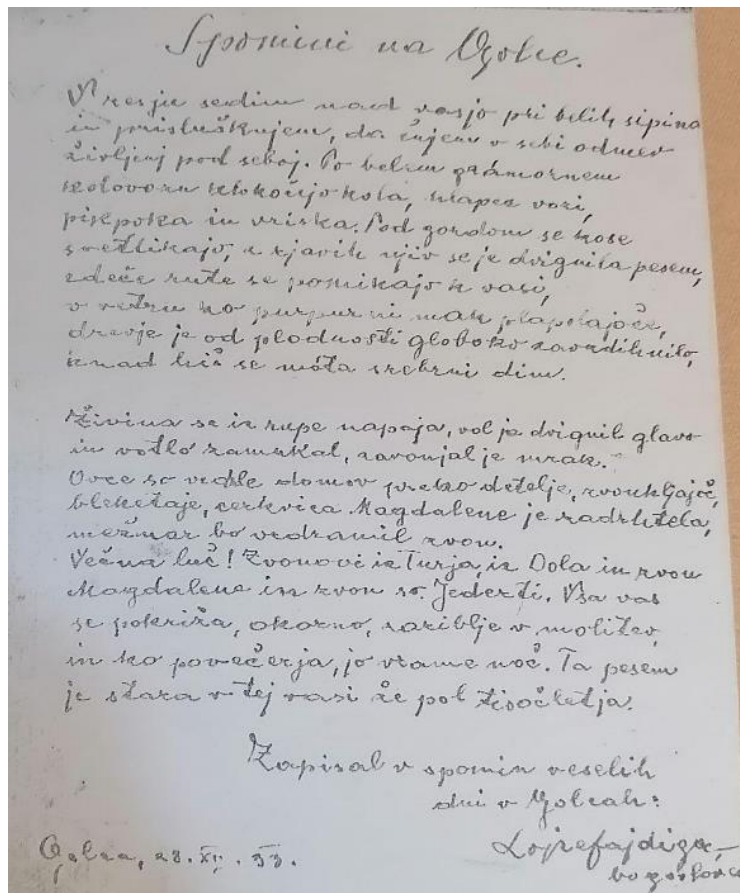 Spomini na Golce.
V resju sedim nad vasjo pri belih sipina
in prisluškujem, da čujem v sebi odmev
življenj pod seboj. Po belem mármornem
kolovozu klokočejo kola, hlapec vozi,
piskpoka in vriska. Pod gozdom se kose
svetlikajo, z rjavih njiv se je dvignila pesem,
rdeče rute se pomikajo k vasi,
v vetru ko purpurni mak plapolajoče,
drevje je od plodnosti globoko zavzdihnilo,
iznad hiš se móta srebrni dim.
Živina se iz rupe napaja, vol je dvignil glavo
in votlo zamukal, zavonjal je mrak.
Ovce so vedле domov preko detelje, zvonkljajoč,
bleketaje, cerkvica Magdalene je zadrhtela,
mežnar bo vzdramil zvon.
Večna luč! Zvonovi iz Turja, iz Dola in zvon
Magdalene in zvon sv. Jederti. Vsa vas
se pokriža, okorno, zariblje v molitev,
in ko povečerja, jo vzame noč. Ta pesem
je stara v tej vasi že pol tisočletja.
Zapisal v spomin veselih
dni v Golcah:
Lojze fajdiga,
bogoslovec
28. XII. 33.